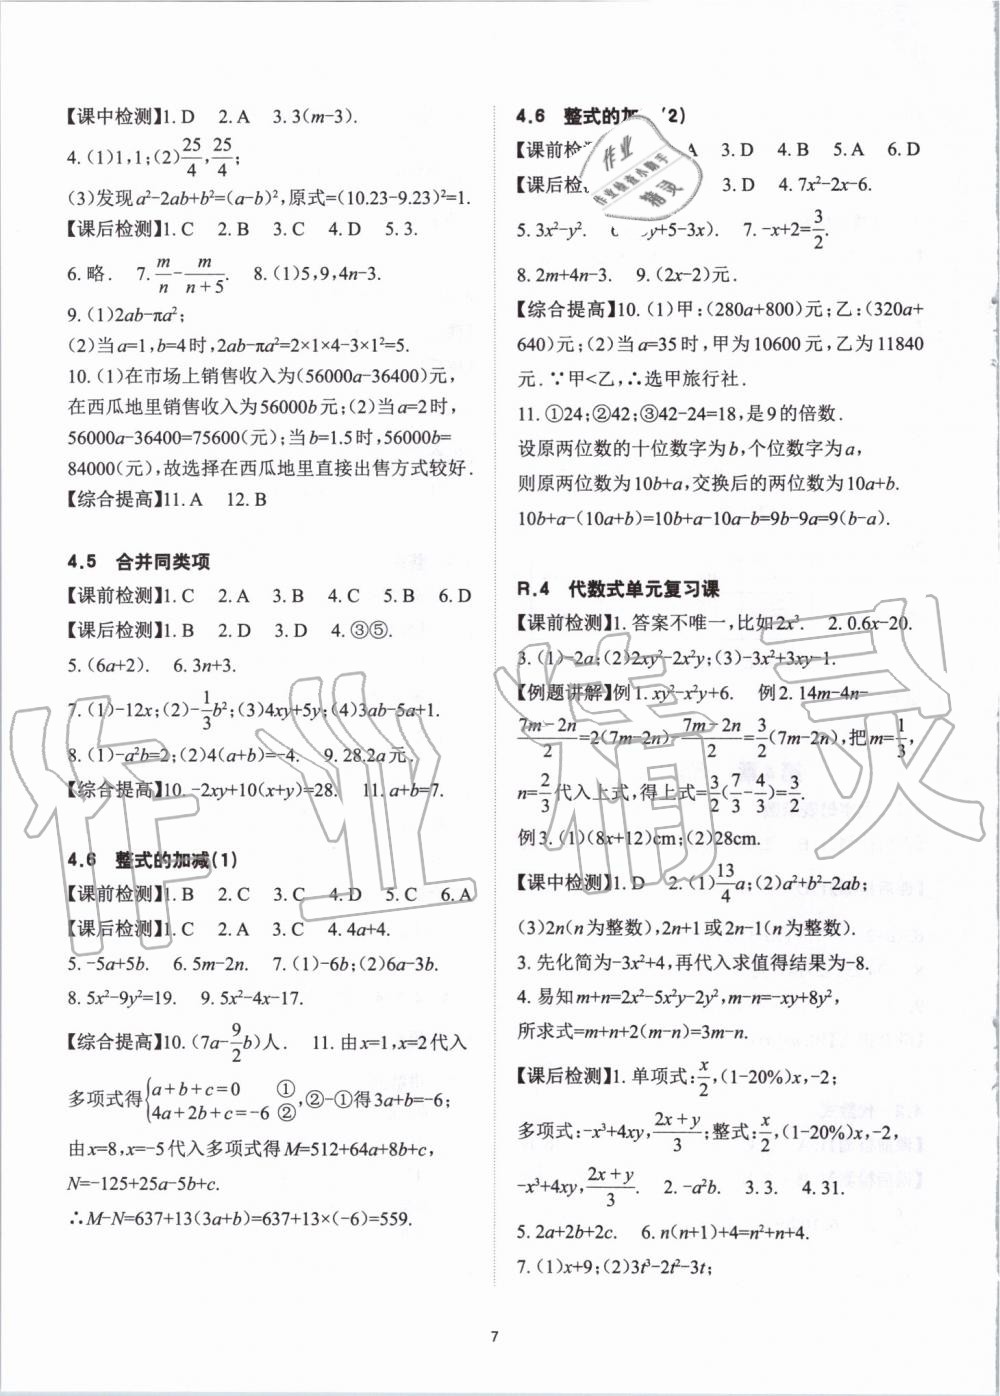 【课中检测】1. D　2. A　3. 3(m-3).
4. (1)1,1;(2)25/4,25/4;
(3)发现a²-2ab+b²=(a-b)²,原式=(10.23-9.23)²=1.
【课后检测】1. C　2. B　3. C　4. D　5. 3.
6. 略.　7. m/n-m/(n+5).　8. (1)5,9,4n-3.
9. (1)2ab-πa²;
(2)当a=1,b=4时,2ab-πa²=2×1×4-3×1²=5.
10. (1)在市场上销售收入为(56000a-36400)元,
在西瓜地里销售收入为56000b元;(2)当a=2时,
56000a-36400=75600(元);当b=1.5时,56000b=
84000(元),故选择在西瓜地里直接出售方式较好.
【综合提高】11. A　12. B
4.5　合并同类项
【课前检测】1. C　2. A　3. B　4. C　5. B　6. D
【课后检测】1. B　2. D　3. D　4. ③⑤.
5. (6a+2).　6. 3n+3.
7. (1)-12x;(2)-1/3b²;(3)4xy+5y;(4)3ab-5a+1.
8. (1)-a²b=2;(2)4(a+b)=-4.　9. 28.2a元.
【综合提高】10. -2xy+10(x+y)=28.　11. a+b=7.
4.6　整式的加减(1)
【课前检测】1. B　2. C　3. C　4. D　5. C　6. A
【课后检测】1. C　2. A　3. C　4. 4a+4.
5. -5a+5b.　6. 5m-2n.　7. (1)-6b;(2)6a-3b.
8. 5x²-9y²=19.　9. 5x²-4x-17.
【综合提高】10. (7a-9/2b)人.　11. 由x=1,x=2代入
多项式得{a+b+c=0 ① 4a+2b+c=-6 ②,②-①得3a+b=-6;
由x=8,x=-5代入多项式得M=512+64a+8b+c,
N=-125+25a-5b+c.
∴M-N=637+13(3a+b)=637+13×(-6)=559.
4.6　整式的加 (2)
【课前检 A　3. D　4. B　5. A　6. D
【课后检 3. D　4. 7x²-2x-6.
5. 3x²-y².　y+5-3x).　7. -x+2=3/2.
8. 2m+4n-3.　9. (2x-2)元.
【综合提高】10. (1)甲:(280a+800)元;乙:(320a+
640)元;(2)当a=35时,甲为10600元,乙为11840
元.∵甲<乙,∴选甲旅行社.
11. ①24;②42;③42-24=18,是9的倍数.
设原两位数的十位数字为b,个位数字为a,
则原两位数为10b+a,交换后的两位数为10a+b.
10b+a-(10a+b)=10b+a-10a-b=9b-9a=9(b-a).
R.4　代数式单元复习课
【课前检测】1. 答案不唯一,比如2x³.　2. 0.6x-20.
3. (1)-2a;(2)2xy²-2x²y;(3)-3x²+3xy-1.
【例题讲解】例1. xy²-x²y+6.　例2. 14m-4n-
(7m-2n)/2=2(7m-2n)-(7m-2n)/2=3/2(7m-2n),把m=1/3,
n=2/3代入上式,得上式=3/2(7/3-4/3)=3/2.
例3. (1)(8x+12)cm;(2)28cm.
【课中检测】1. D　2. (1)13/4a;(2)a²+b²-2ab;
(3)2n(n为整数),2n+1或2n-1(n为整数).
3. 先化简为-3x²+4,再代入求值得结果为-8.
4. 易知m+n=2x²-5x²y-2y²,m-n=-xy+8y²,
所求式=m+n+2(m-n)=3m-n.
【课后检测】1. 单项式:x/2,(1-20%)x,-2;
多项式:-x³+4xy,(2x+y)/3;整式:x/2,(1-20%)x,-2,
-x³+4xy,(2x+y)/3.　2. -a²b.　3. 3.　4. 31.
5. 2a+2b+2c.　6. n(n+1)+4=n²+n+4.
7. (1)x+9;(2)3t³-2t²-3t;
7
作业精灵
作业
作业检查小助手
精灵